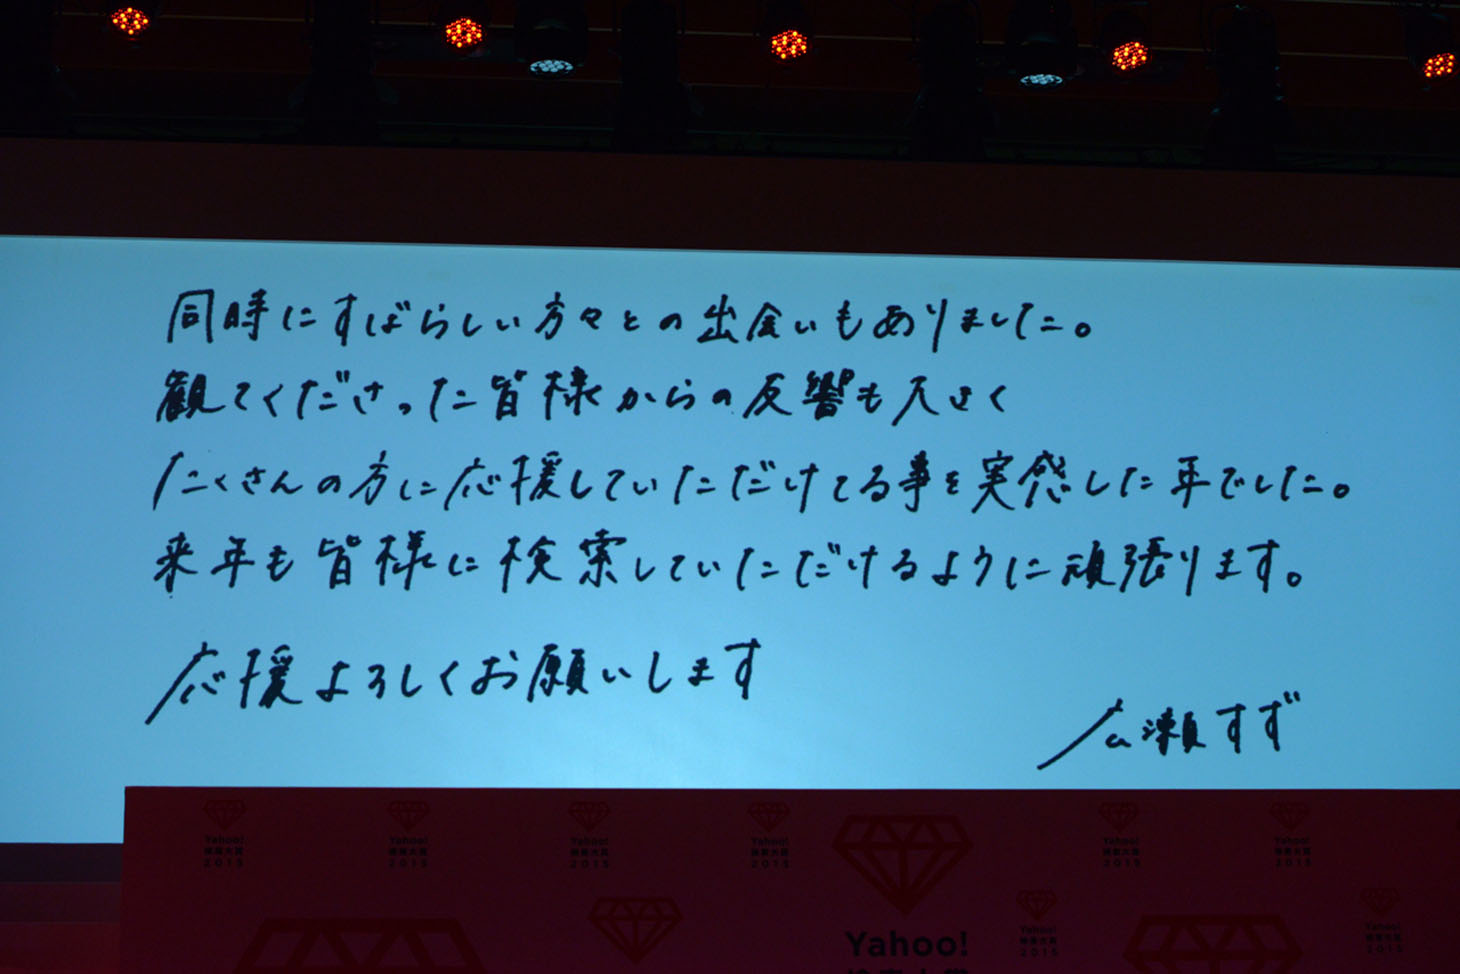 同時にすばらしい方々との出会いもありました。
観てくださった皆様からの反響も大きく
たくさんの方に応援していただけてる事を実感した年でした。
来年も皆様に検索していただけるように頑張ります。
応援よろしくお願いします
広瀬すず
Yahoo!
検索大賞
2015
Yahoo!
検索大賞
2015
Yahoo!
検索大賞
2015
Yahoo!
検索大賞
2015
Yahoo!
検索大賞
2015
Yahoo!
検索大賞
2015
Yahoo!
検索大賞
Yahoo!
検索大賞
2015
Yahoo!
検索大賞
2015